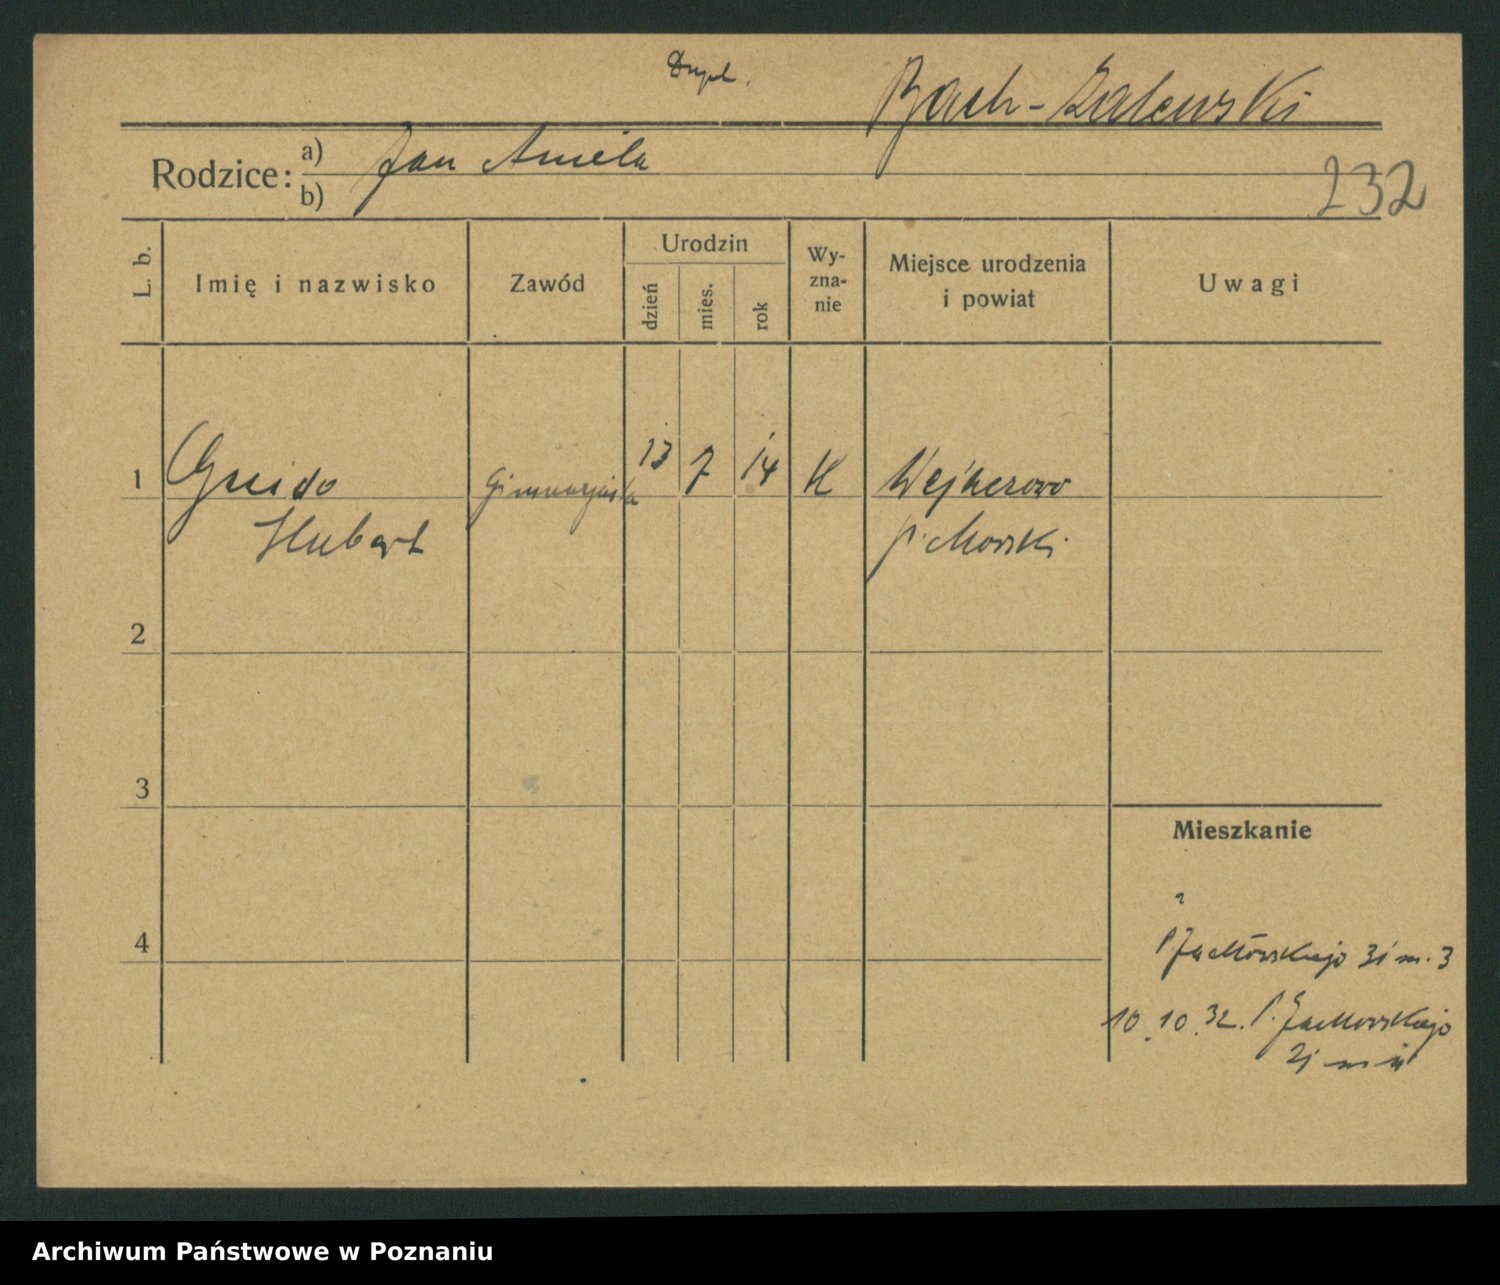 Dupl.
Bach-Zalewski
Rodzice: a) Jan Aniela
b)
232
L. b.
Imię i nazwisko
Zawód
Urodzin
dzień
mies.
rok
Wy-
zna-
nie
Miejsce urodzenia
i powiat
Uwagi
1 Guido Gimnazjasta 13 7 14 K Wejherowo
Hubert p. Morski
2
3
Mieszkanie
4
P. Jackowskiego 31 m. 3
10.10.32. P. Jackowskiego
Archiwum Państwowe w Poznaniu